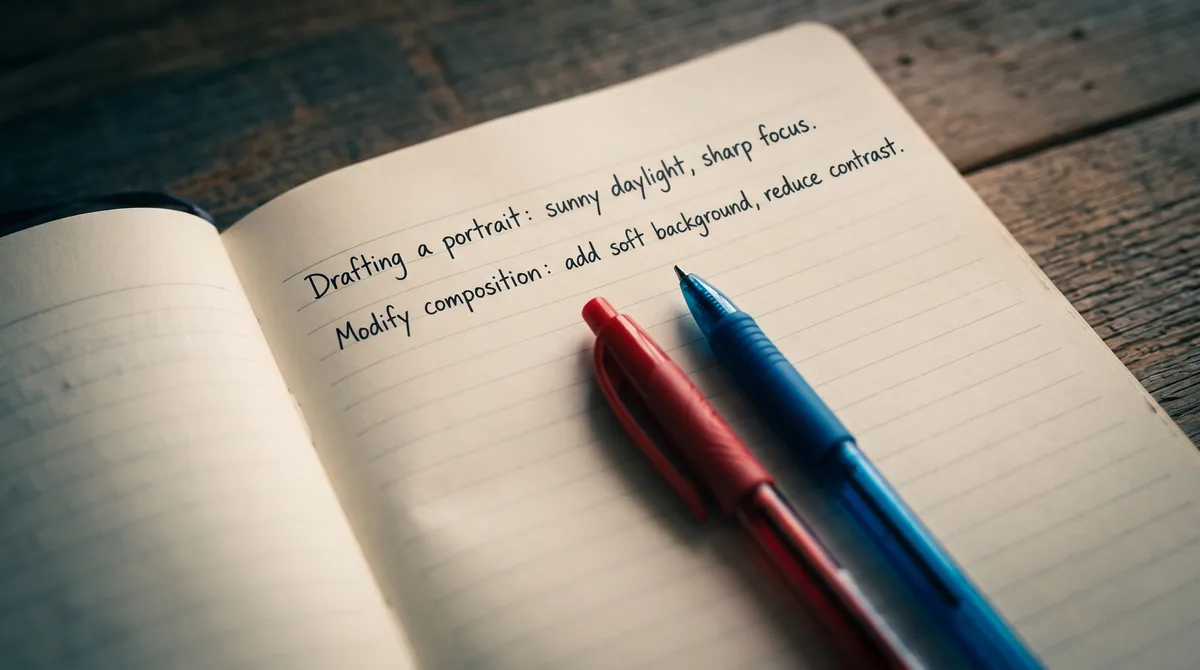 Drafting a portrait: sunny daylight, sharp focus.
Modify composition: add soft background, reduce contrast.